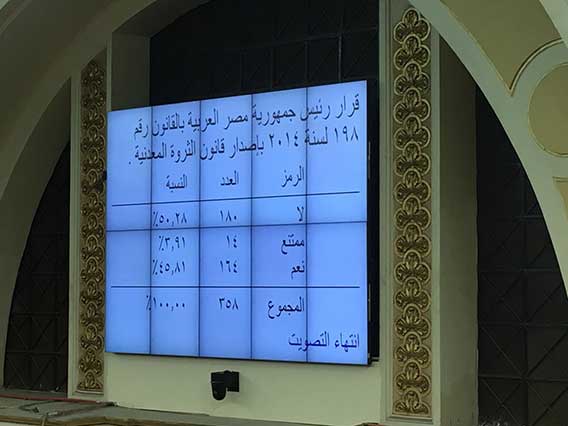 قرار رئيس جمهورية مصر العربية بالقانون رقم
١٩٨ لسنة ٢٠١٤ بإصدار قانون الثروة المعدنية .
الرمز العدد النسبة
لا ١٨٠ ٥٠,٢٨٪
ممتنع ١٤ ٣,٩١٪
نعم ١٦٤ ٤٥,٨١٪
المجموع ٣٥٨ ١٠٠,٠٠٪
انتهاء التصويت